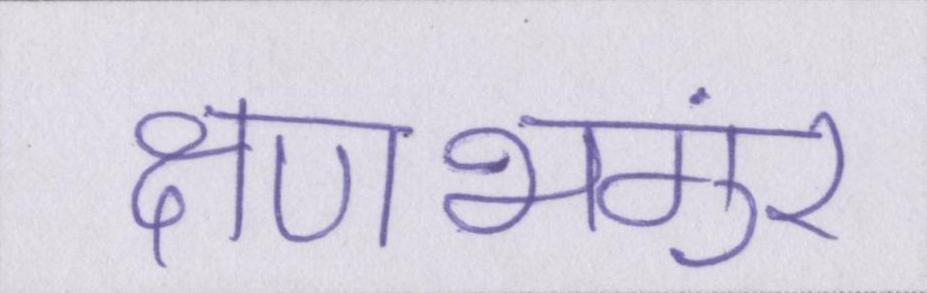 क्षणभगुंर